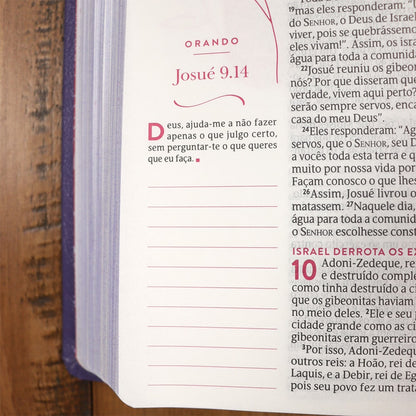 ORANDO
Josué 9.14
Deus, ajuda-me a não fazer
apenas o que julgo certo,
sem perguntar-te o que queres
que eu faça.
¹⁹mas eles responderam: "U
do SENHOR, o Deus de Israel
viver, pois se quebrássemos
eles vivam!". Assim, os isra
água para toda a comunida
²²Josué reuniu os gibeoni
nós? Por que disseram que
verdade, vivem aqui perto?
serão sempre servos, encar
casa do meu Deus".
²⁴Eles responderam: "Ag
servos, que o SENHOR, seu D
a vocês toda esta terra e q
muito por nossa vida por
Façam conosco o que lhes
²⁶Assim, Josué livrou o
matassem. ²⁷Naquele dia,
água para toda a comunid
o SENHOR escolhesse const
ISRAEL DERROTA OS EX
10 Adoni-Zedeque, re
e destruído comple
como tinha destruído a ci
que os gibeonitas haviam
no meio deles. ²Ele e seu p
cidade grande como as ci
gibeonitas eram guerreiro
³Por isso, Adoni-Zedequ
outros reis: a Hoão, rei de
Laquis, e a Debir, rei de Eg
pois seu povo fez um trat